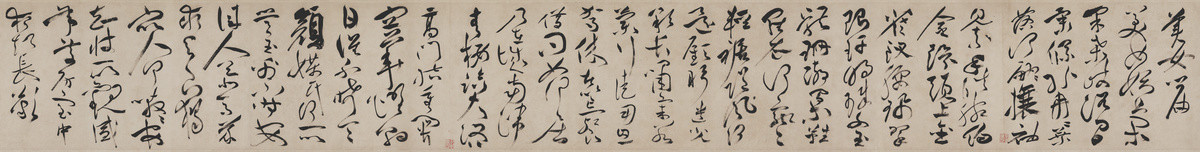 美女篇
美女妖且
閑采桑歧路間
柔條紛冉冉葉
落何翩翩攘袖
見素手皓腕約
金環頭上金
爵釵腰佩翠
琅玕明珠交玉
體珊瑚間木難
羅衣何飄飄
輕裾隨風還
顧盼遺光
彩長嘯氣若
蘭行徒用息
駕休者以忘餐
借問女安居
乃在城南端
青樓臨大路
高門結重關
容華暉朝
日誰不希令
顏媒氏何所
營玉帛不時安
佳人慕高義
求賢良獨
難衆人何嗷嗷安
知彼所觀盛
年處房室中
夜起長歎